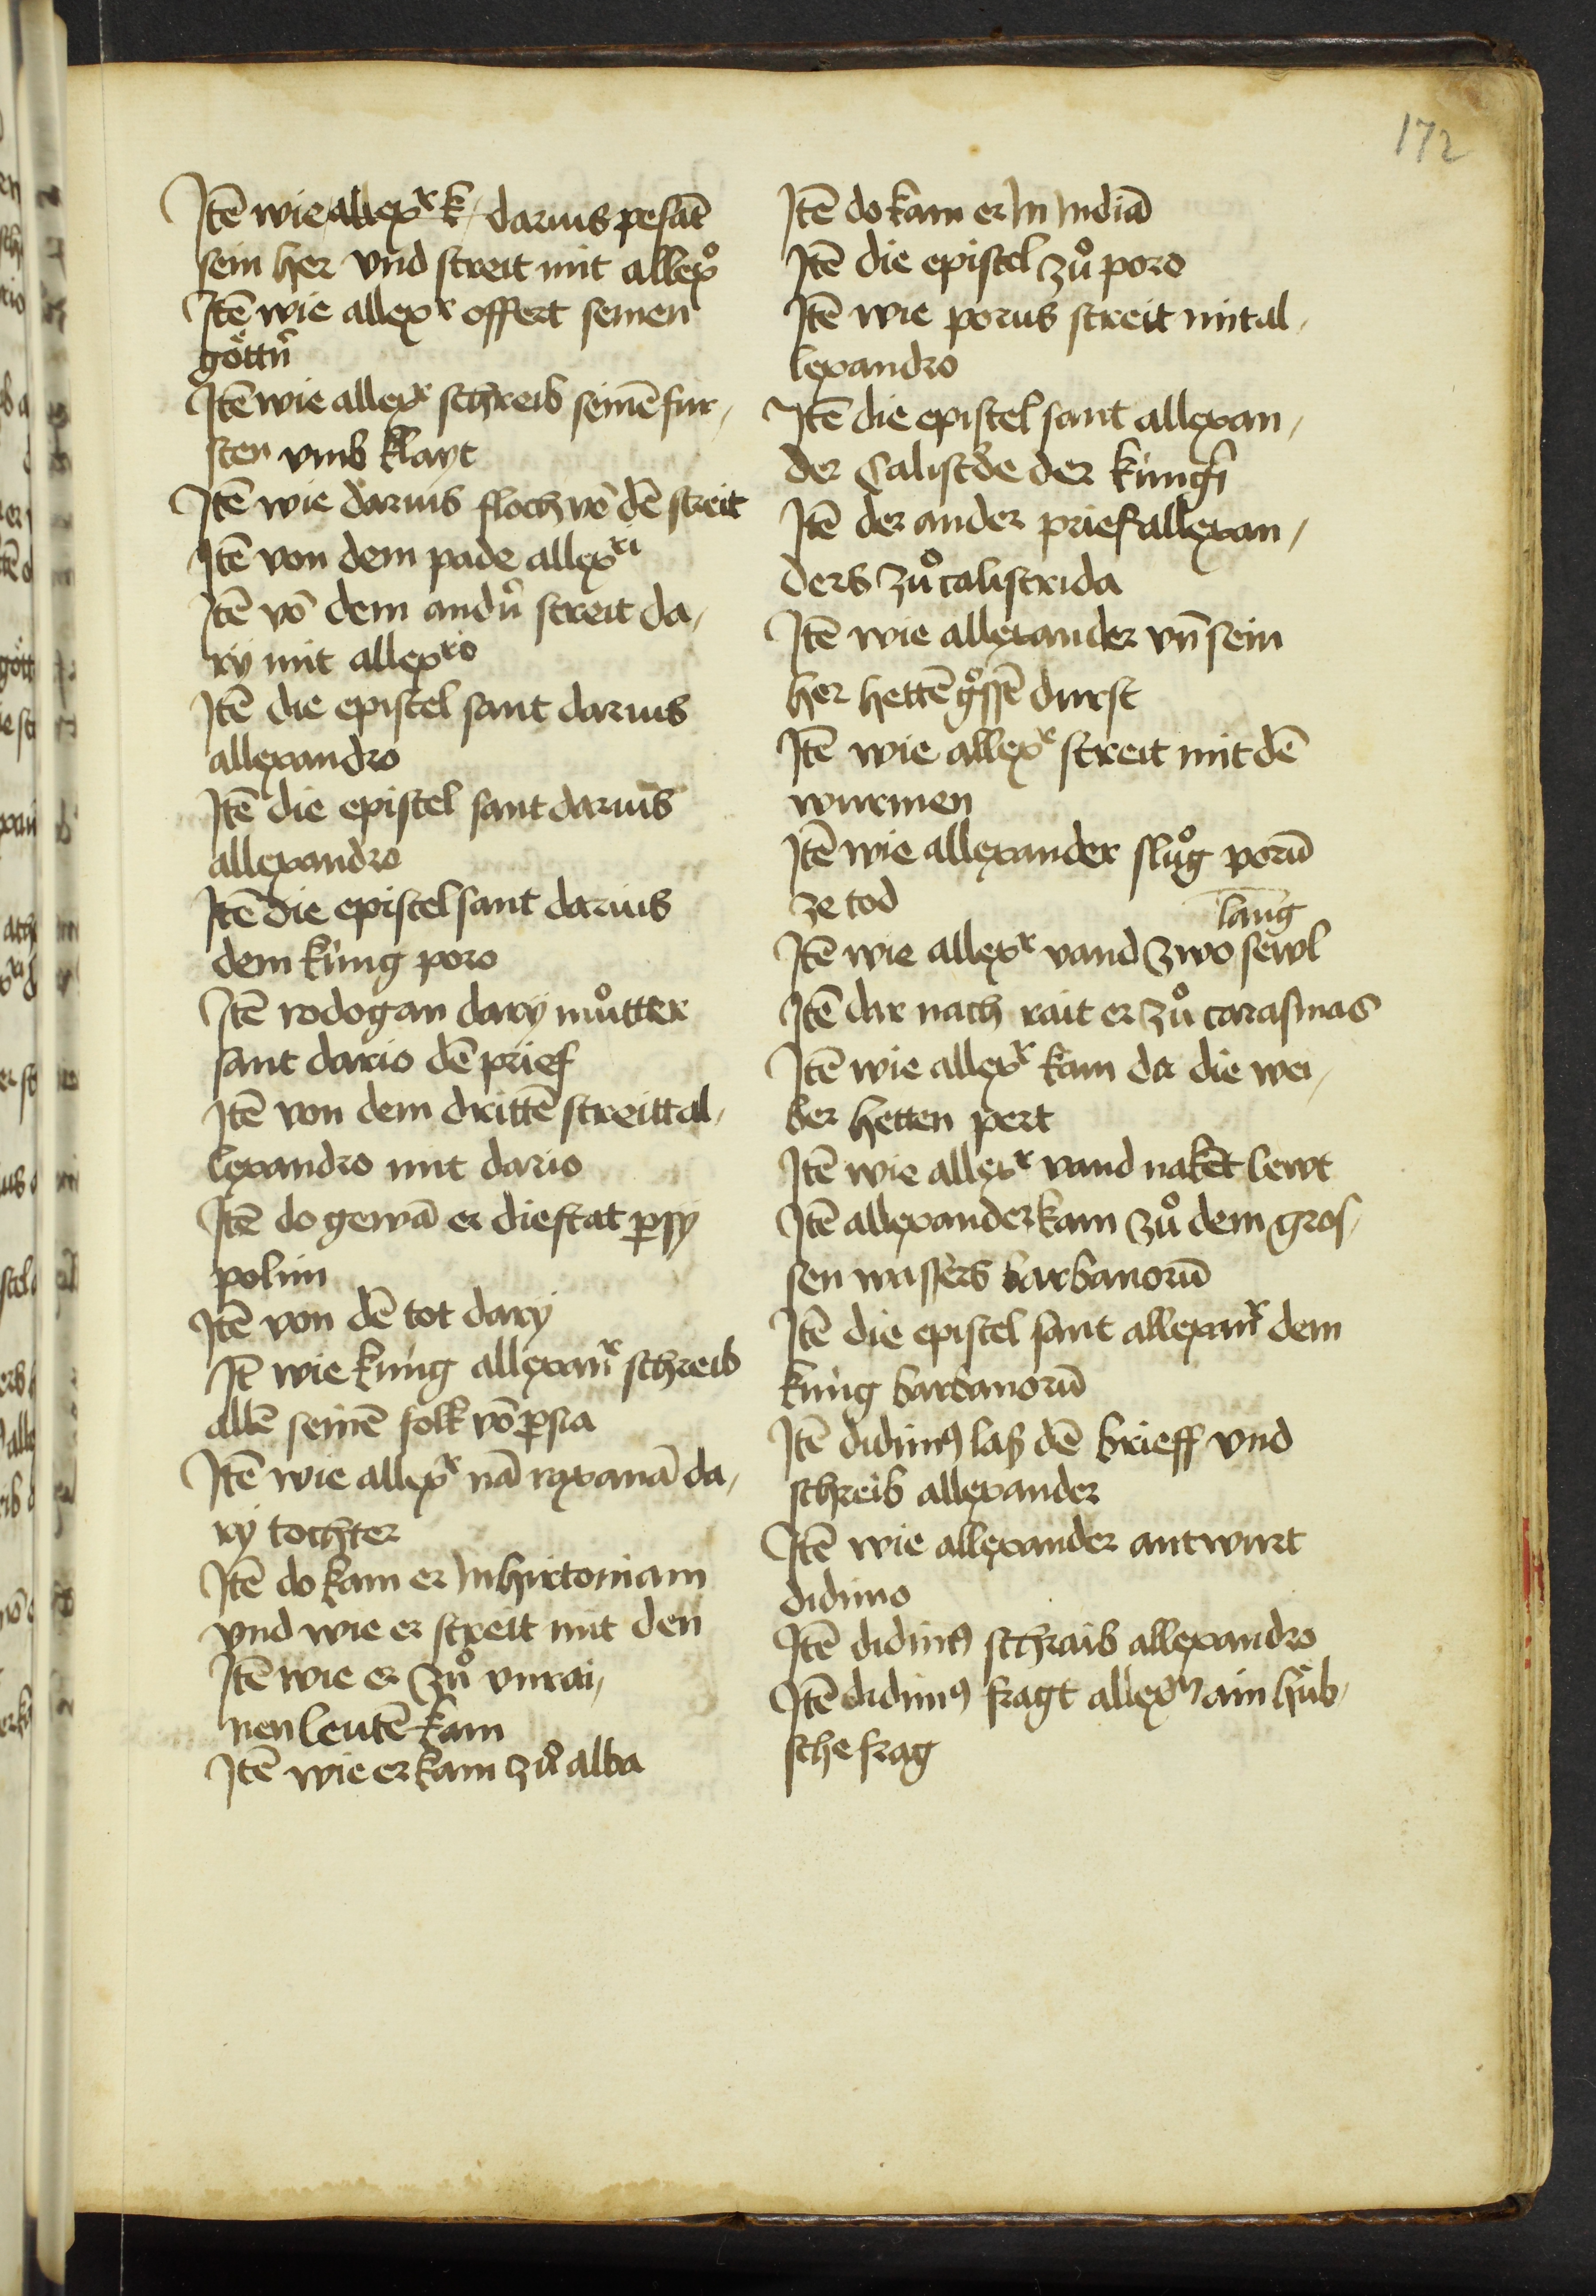 172
Itē wie allexͬ k / darius pesāt
sein her vnd streit mit allexͦ
Itē wie allexͬ offert seinen
göttn̄
Itē wie allexͬ schreib seinē fur /
sten vmb klayt
Itē wie darius floch vō dē streit
Itē von dem pade allexͬⁱ
Itē vō dem andn̄ streit da /
rÿ mit allexͬͦ
Itē die epistel sant darius
allexandro
Itē die epistel sant darius
allexandro
Itē die epistel sant darius
dem küng poro
Itē rodogan darÿ muͦtter
sant dario dē prief
Itē von dem drittē streitt al /
lexandro mit dario
Itē do gewā er die stat ꝑsy
polim
Itē von dē tot darÿ
It̄ wie küng allexanͬ schreib
allē seinē folk vō ꝑsia
Itē wie allexͬ nā roxanā da /
rÿ tochter
Itē do kam er In hirtoniam
vnd wie er streit mit den
Itē wie er zuͦ vnrai /
nen leutē kam
Itē wie er kam zuͦ alba
Itē do kam er In Indiā
Itē die epistel zuͦ poro
Itē wie porus streit mit al /
lexandro
Itē die epistel sant allexan /
der Calistde der küngī
Itē der ander prief allexan /
ders zuͦ calistrida
Itē wie allexander vn̄ sein
her hettē gͦssē durst
Itē wie allexͬ streit mit dē
wurmen
Itē wie allexander sluͦg porū
ze tod
lang
Itē wie allexͬ vand zwo sewl
Itē dar nach rait er zuͦ carasmas
Itē wie allexͬ kam da die wei /
ber hetten pert
Itē wie allexͬ vand nakēt lewt
Itē allexander kam zuͦ dem gros /
sen wassers barbanorū
Itē die epistel sant allexanͬ dem
küng barbanorū
Itē didimꝰ laß dē brieff vnd
schreib allexander
Itē wie allexander antwurt
didimo
Itē didimꝰ schraib allexandro
Itē didimꝰ fragt allexn̄ ain hüb /
sche frag